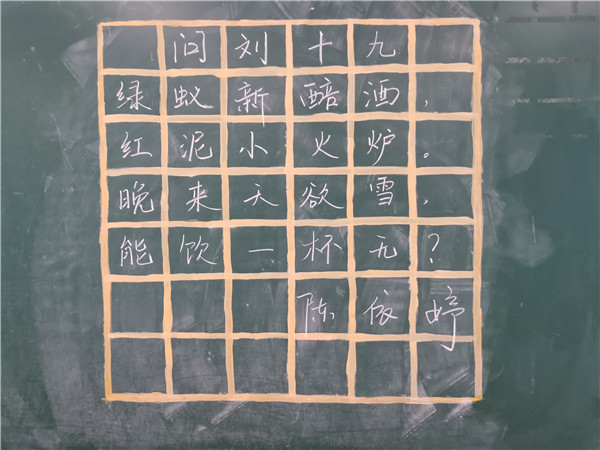 问刘十九
绿蚁新醅酒，
红泥小火炉。
晚来天欲雪，
能饮一杯无？
陈依婷